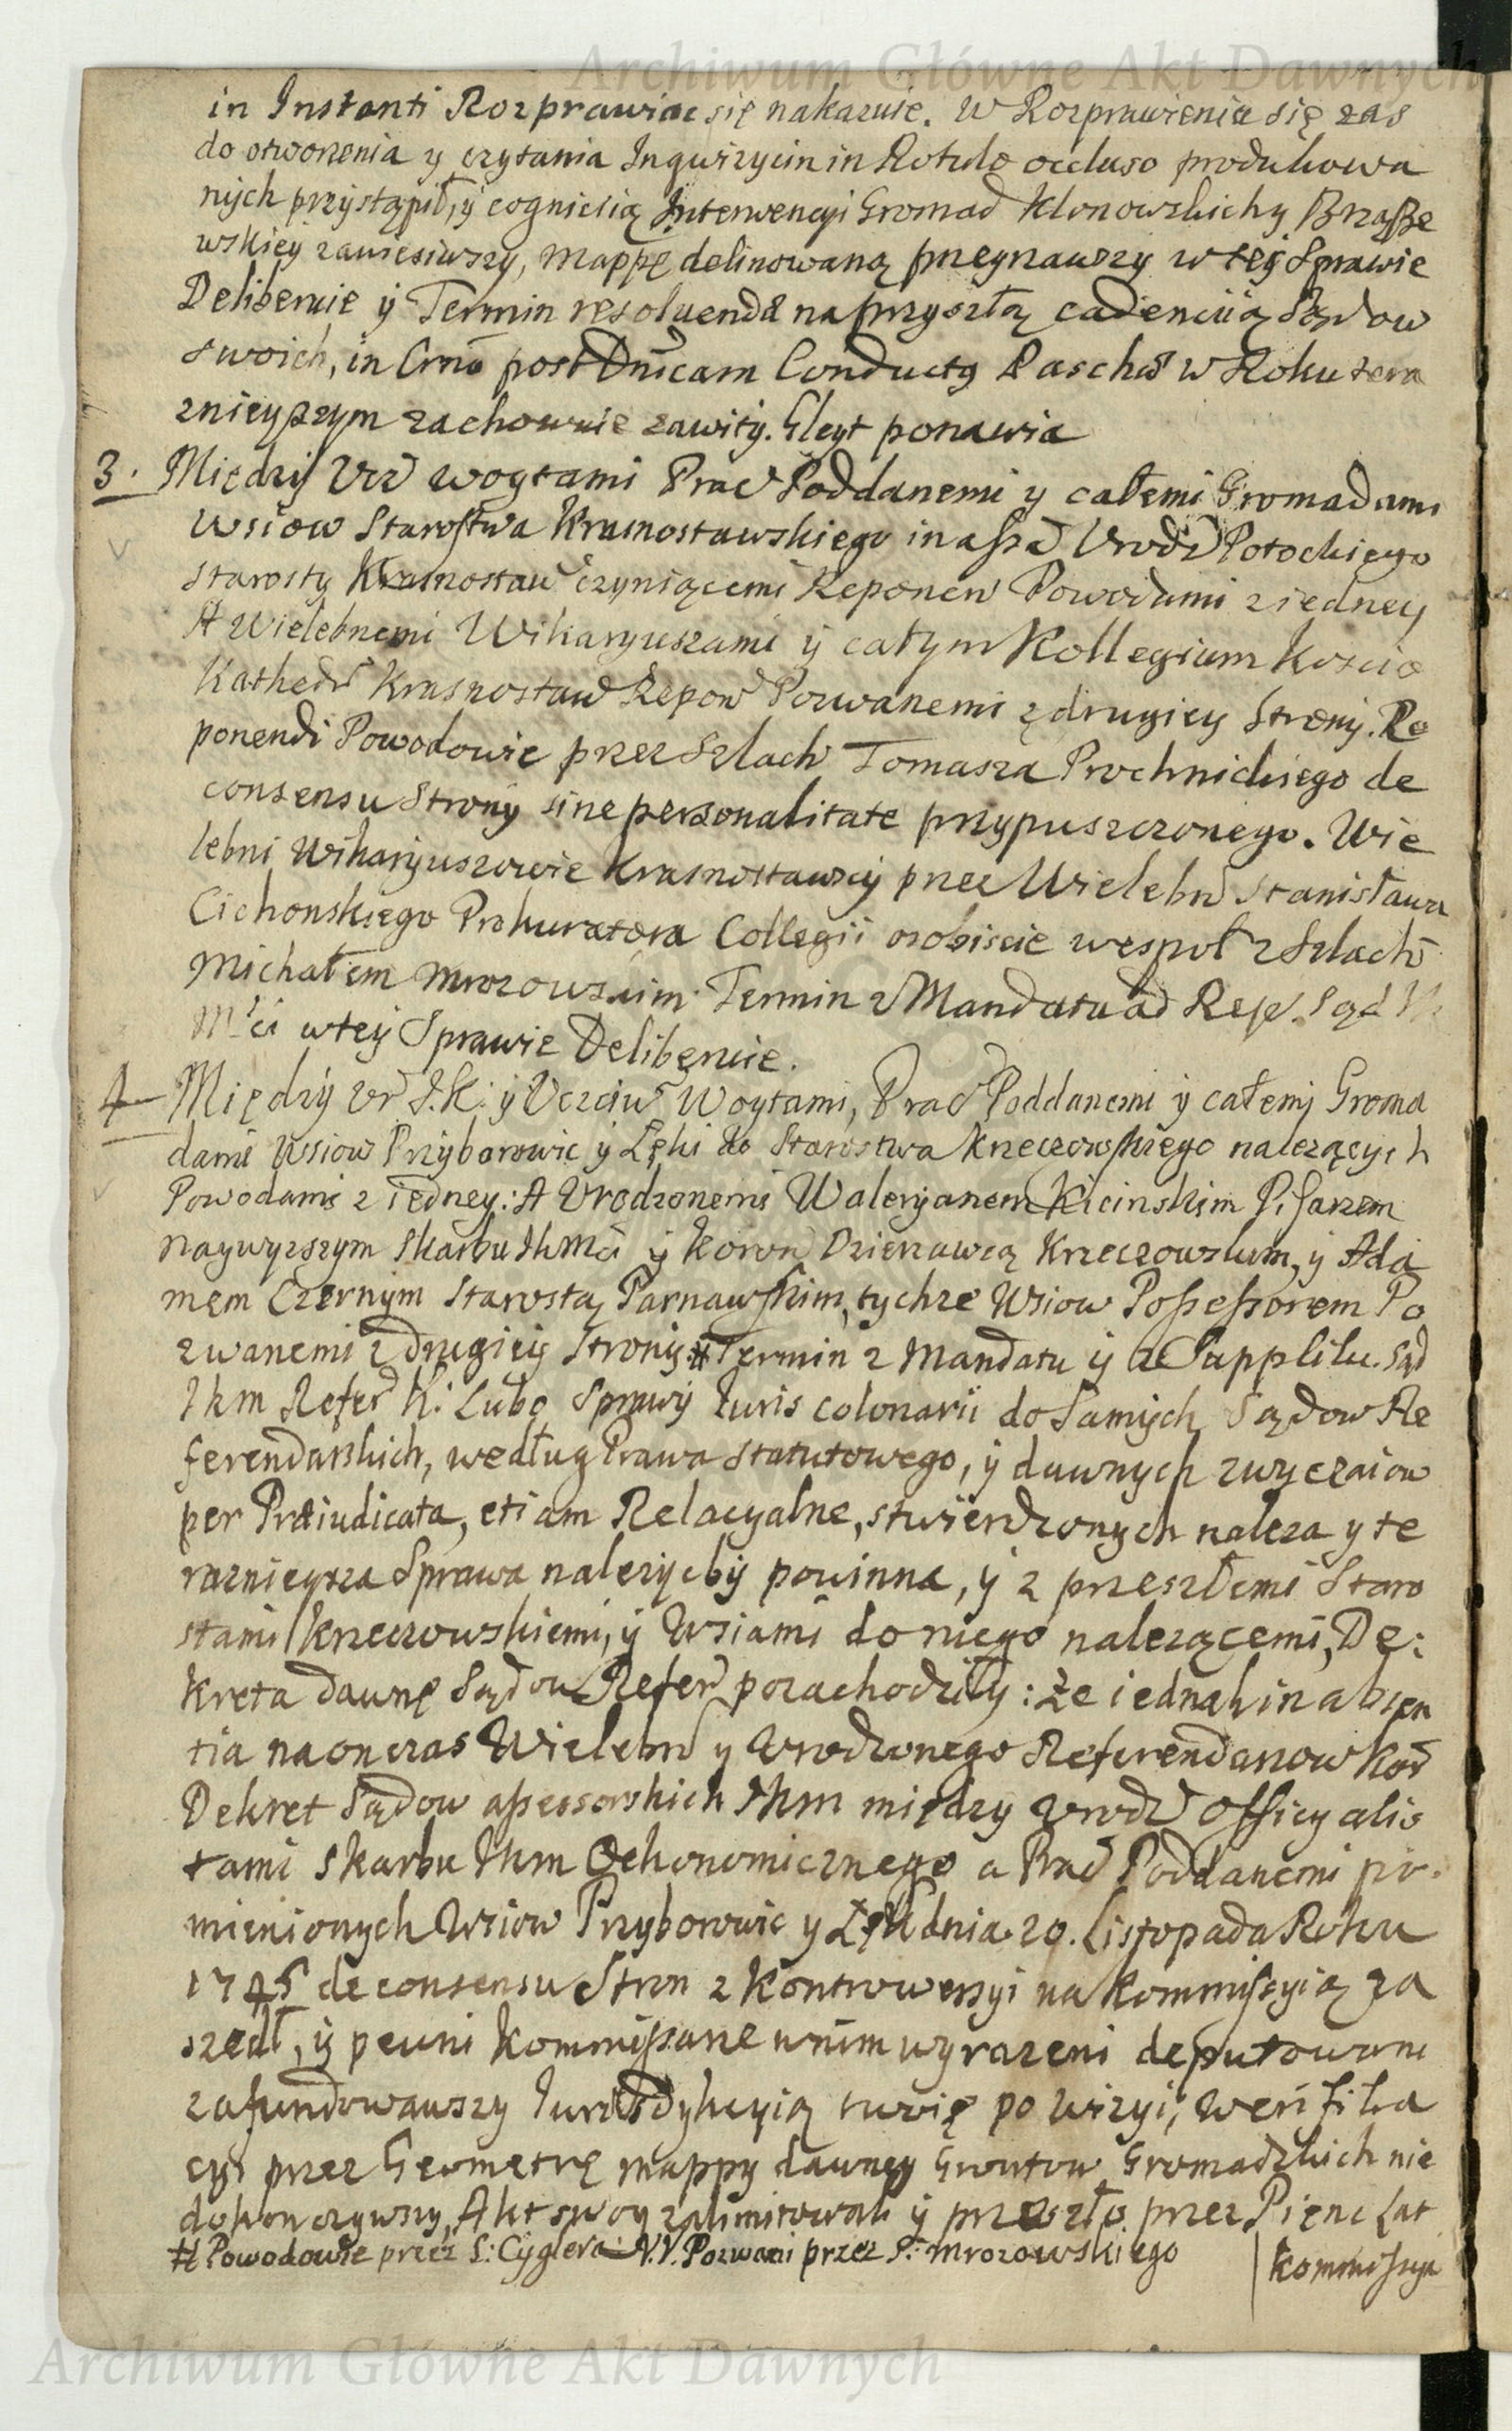 Archiwum Główne Akt Dawnych
in Instanti Rozprawiac się nakazuie. W Rozprawieniu się zas
do otworzenia y czytania Inqwizycin in Rotulo occluso produkowa
nych przystąpił, y cognicią Interwencyi Gromad Klonowskichy Brząsze
wskiey zawiesiwszy, Mappę delinowaną przeyrzawszy w tey Sprawie
Deliberuie y Termin resoluendæ na przyszłą cadencyią Sądow
swoich, in Crno post Dnicam Conductg Paschæ w Roku tera
znieyszym zachowuie zawity. Gleyt ponawia
3. Między Vcz woytami Prac Poddanemi y całemi Gromadami
Wsiow Starostwa Krasnostawskiego in assa Vrodz Potockiego
Starosty Krasnostaw czyniącemi Reponen Powodami z iedney
A Wielebnemi Wikaryuszami y całym Kollegium Koscio
Kathedr Krasnostaw Repon Pozwanemi z drugiey Strony. Re
ponendi Powodowie przez Szlach Tomasza Prochnickiego de
consensu Strony sine personalitate przypuszczonego. Wie
lebni Wikaryuszowie Krasnostawscy przez Wielebn Stanisława
Cichonskiego Prokuratora Collegii osobiscie wespoł z Szlach
Michałem Mrozowskim. Termin z Mandatu ad Rep. Sąd
Mci w tey Sprawie Deliberuie.
4 Między Vr S.K: y Vczciw Woytami, Prac Poddanemi y całemi Groma
dami Wsiow Przyborowic y Lęki do Starostwa Krzeczowskiego nalezących
Powodami z iedney: A Vrodzonemi Waleryanem Kicinskim Pisarzem
naywyzszym Skarbu Jkmci y Koron Dzierzawcą Krzeczowskim, y Ada
mem Czernym Starostą Parnawskim, tychze Wsiow Possessorem Po
zwanemi z drugiey Strony # Termin z Mandatu y ze Supplik. Sąd
Jkm Refer K: Lubo Sprawy Iuris colonarii do Samych Sądow Re
ferendarskich, według Prawa Statutowego, y dawnych zwyczaiow
per Præiudicata, etiam Relacyalne, stwierdzonych naleza y te
raznieysza Sprawa nalezycby powinna, y z przeszłemi Staro
stami Krzeczowskiemi, y Wsiami do niego nalezącemi, De:
kreta dawne Sądow Refer pozachodziły: że iednak in absen
tia na onczas Wielebn y Vrodzonego Referendarzow Kor
Dekret Sądow assessorskich Jkm między Vrodz Officyalis
tami Skarbu Jkm Oekonomicznego a Prac Poddanemi po
mienionych Wsiow Przyborowic y Lęki dnia 20. Listopada Roku
1745 de consensu Stron z Kontrowersyi na Kommissyią za
szedł, y pewni Kommissarze w nim wyrazeni deputowani
zafundowawszy Iurisdykcyią swoię po wizyi, weryfika
cyi przez Geometrę mappy dawney Gruntow Gromadzkich nie
dokonczywszy, Akt swoy zalimitowali y przeszło przez Pięnc Lat
# Powodowie przez S: Cyglera V.V. Pozwani przez S: Mrozowskiego
Kommissya
Archiwum Główne Akt Dawnych